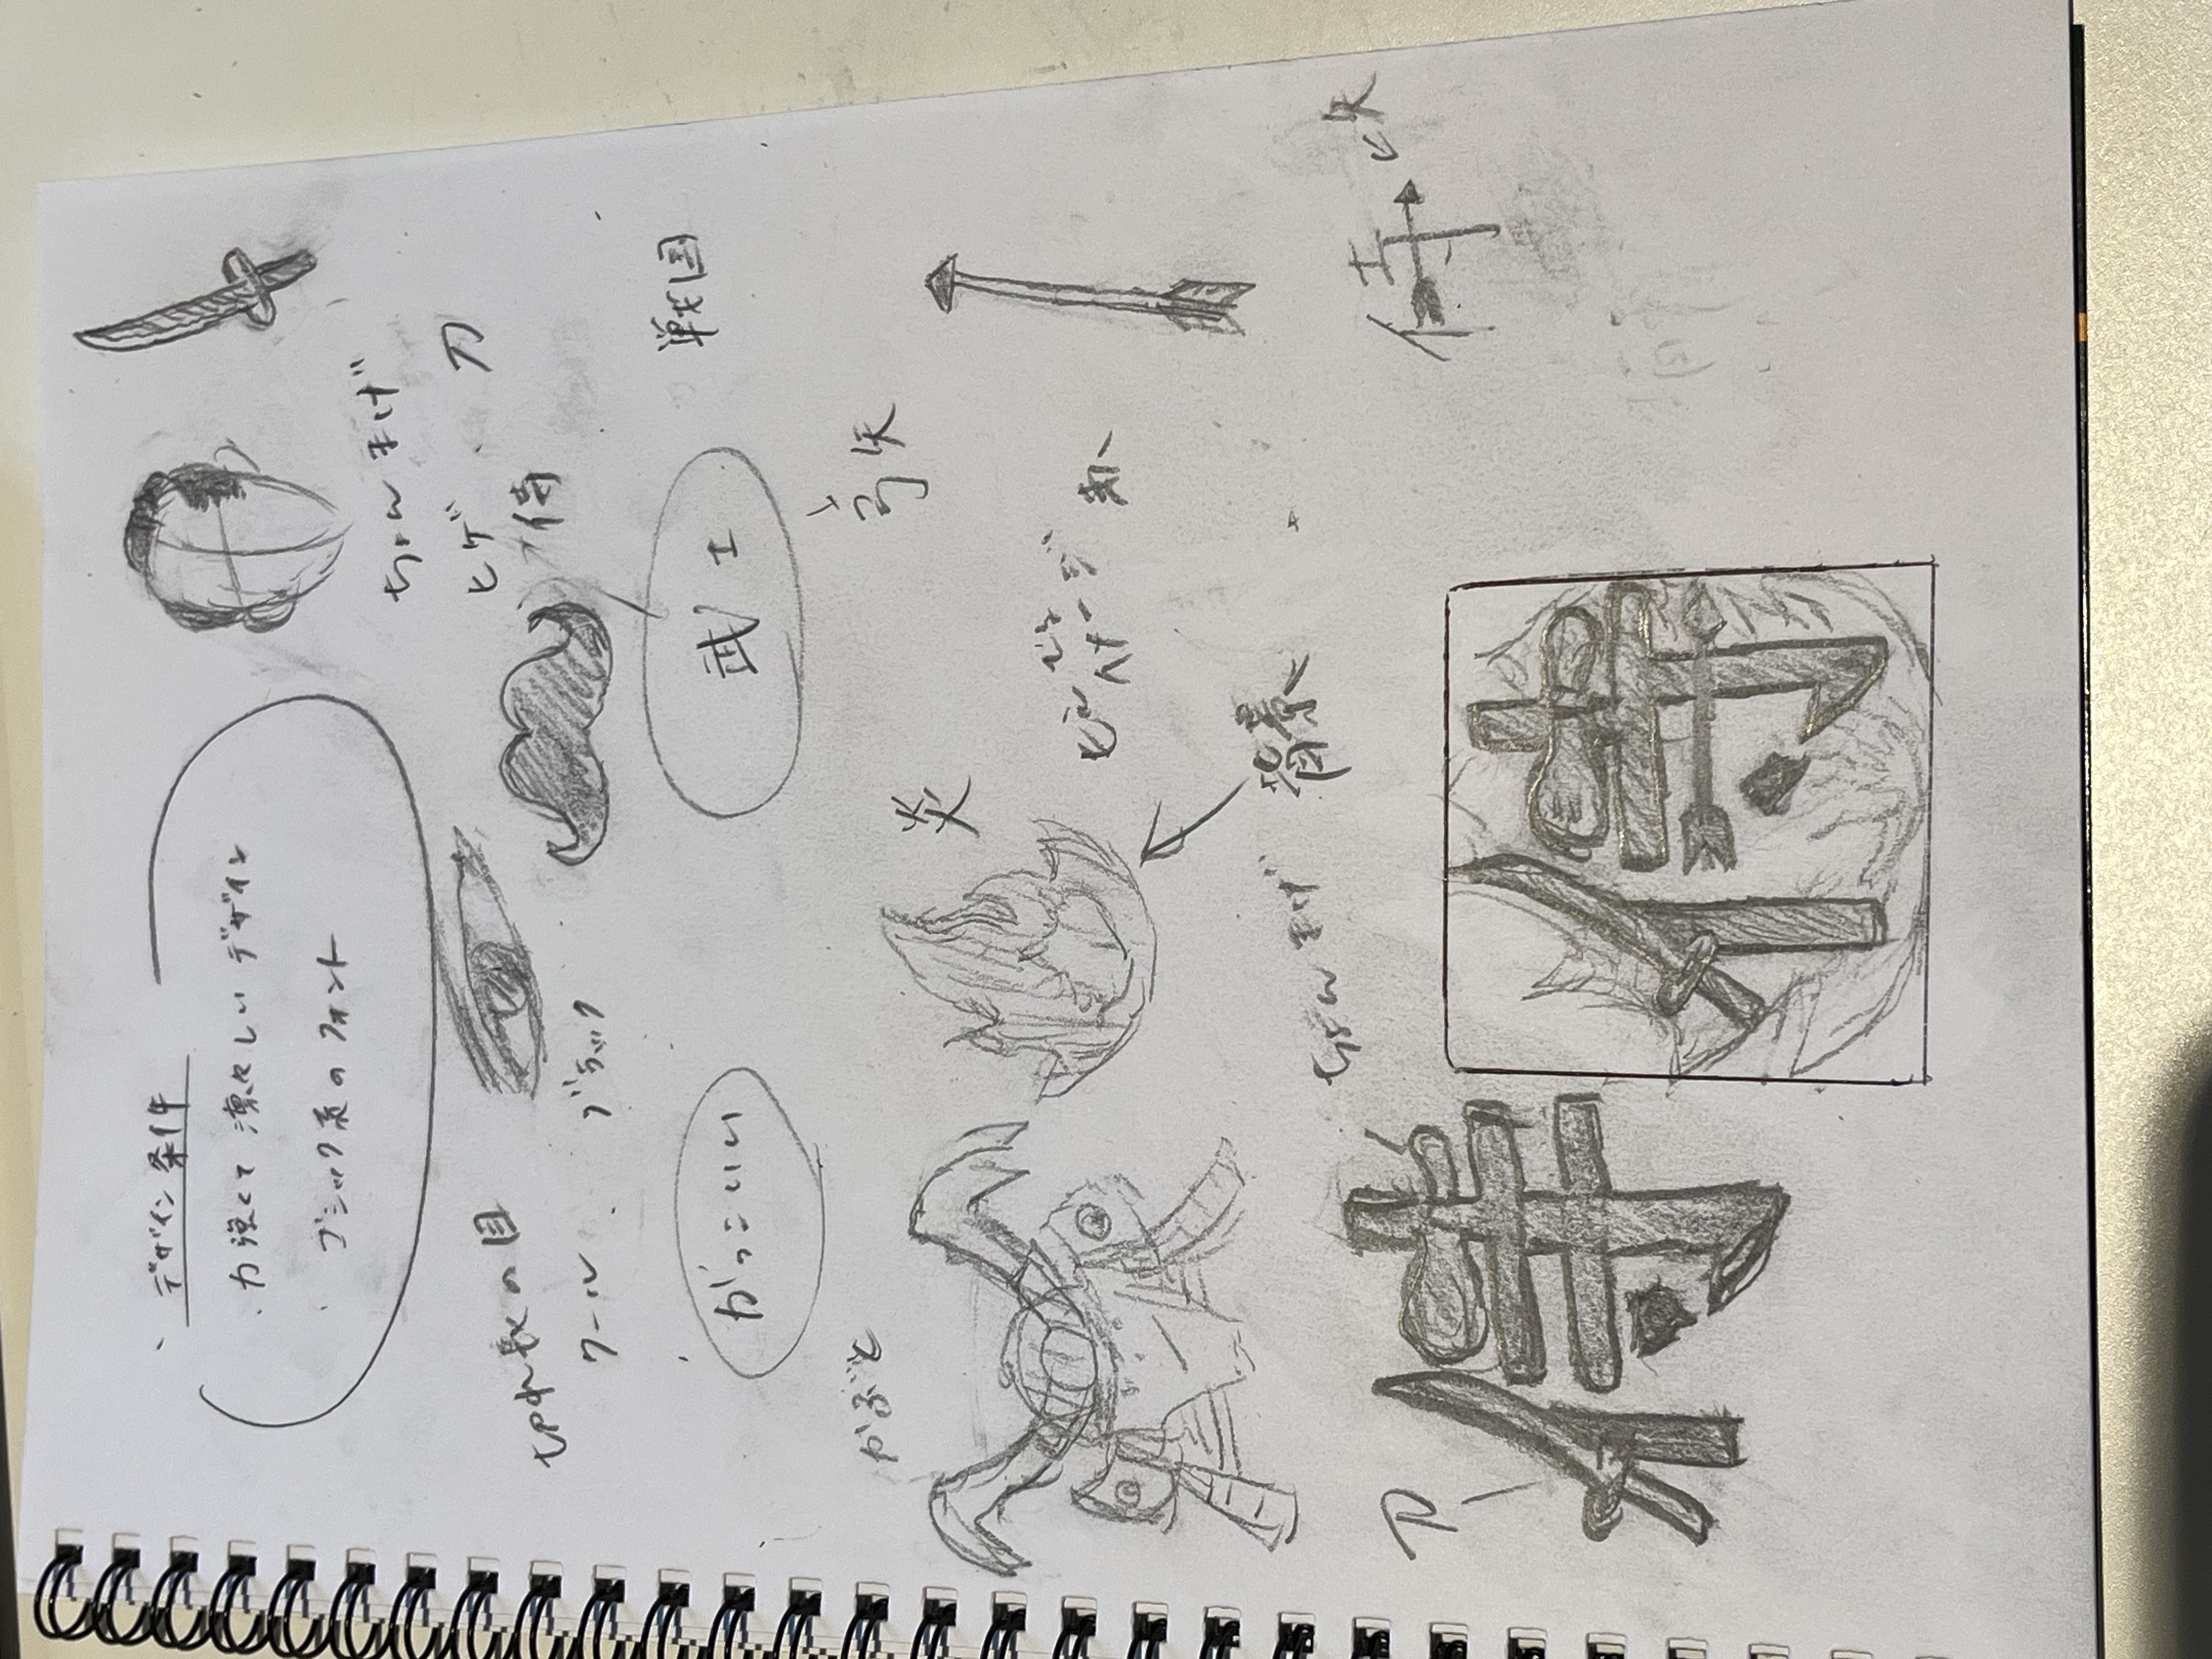 デザイン条件
・力強くて凛々しいデザイン
・ゴシック系のフォント
ちょんまげ
ヒゲ ・ 刀
侍
切れ長の目
クール ・ ブラック
かっこいい
武士
戦国
弓矢
かぶと
炎
イメージ
背景
ちょんまげ
刀
侍
侍
侍
矢